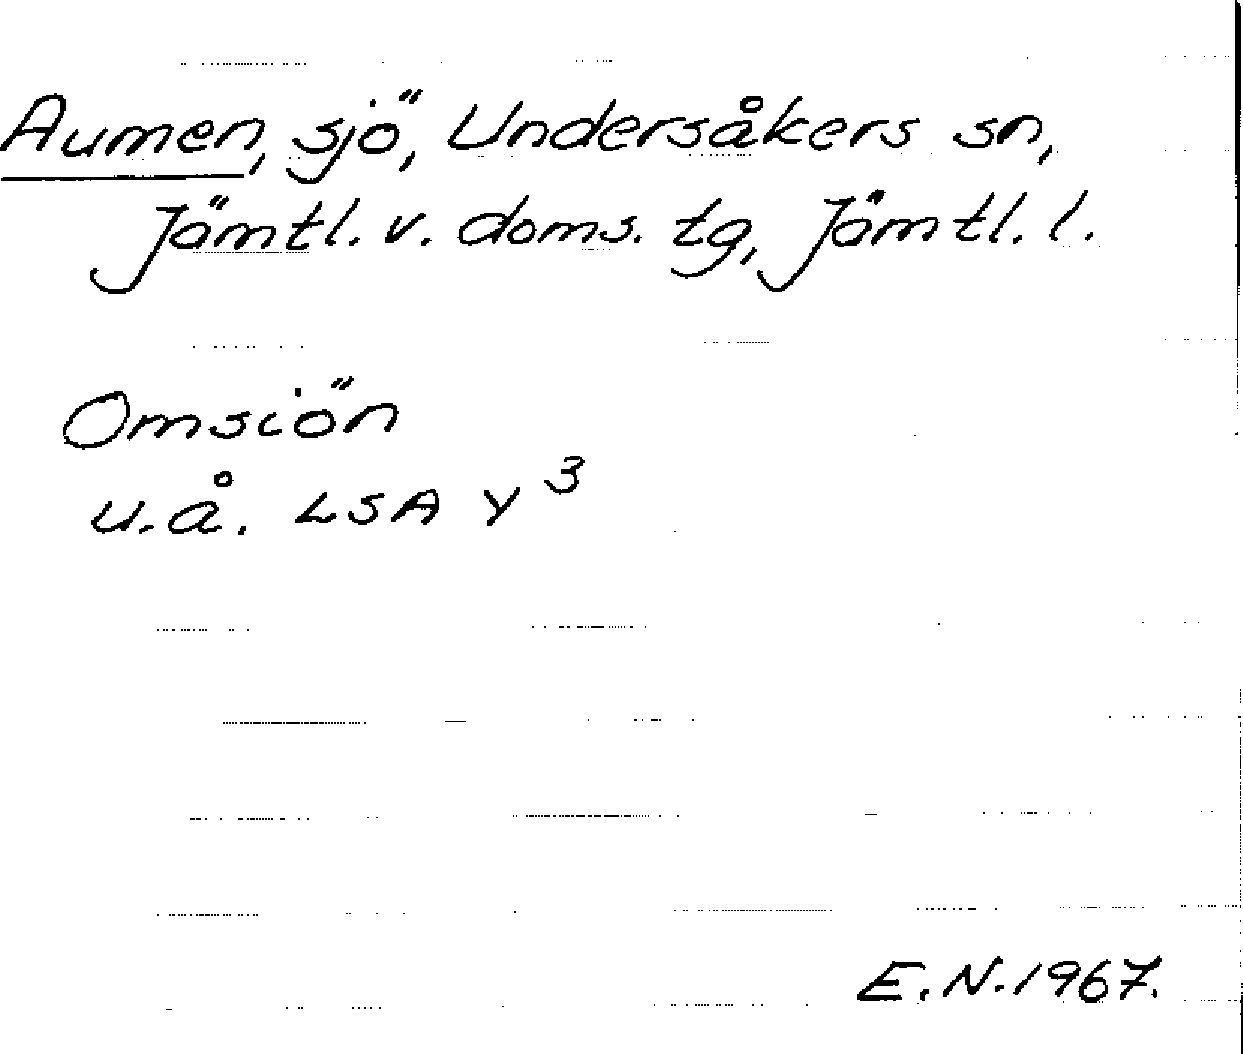 Aumen, sjö, Undersåkers sn,
Jämtl. v. doms. tg, Jämtl. l.
Omsiön
u.å. LSA Y 3
E.N. 1967.